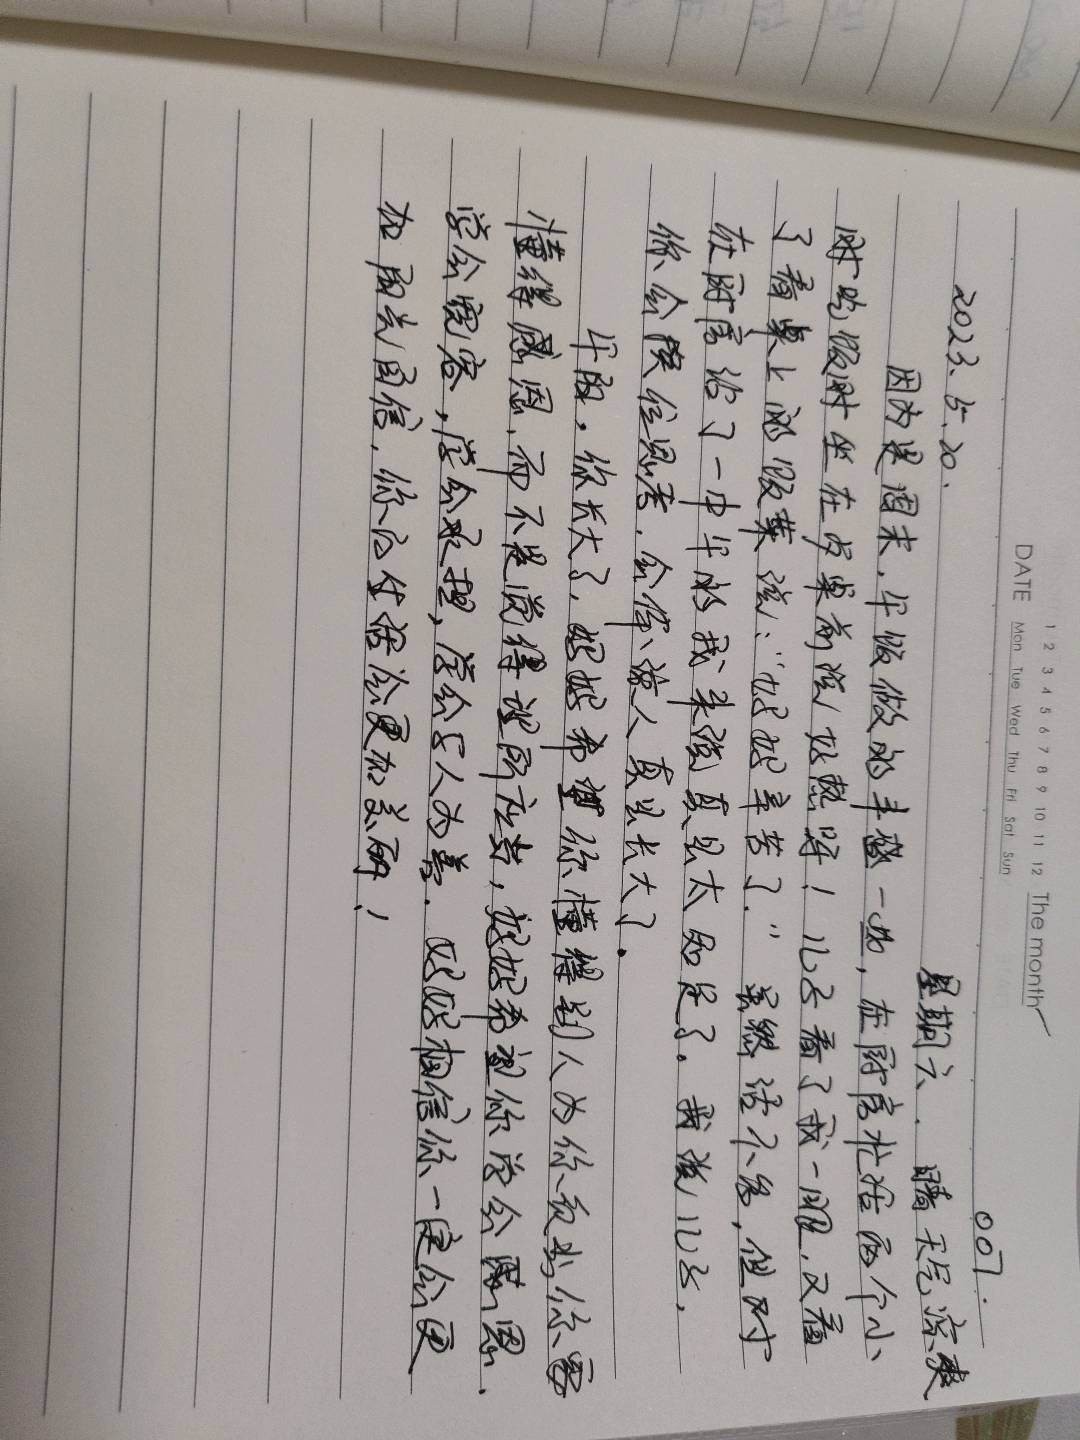 007.
1 2 3 4 5 6 7 8 9 10 11 12 The month
DATE Mon Tue Wed Thu Fri Sat Sun
2023.5.20. 星期六. 晴 天气凉爽
因为是周末,午饭做的丰盛一些,在厨房忙活两个小
时吃饭时坐在桌前说好热呀!儿子看了我一眼,又看
了看桌上的饭菜说:“妈妈辛苦了.”虽然话不多,但对
在厨房站了一中午的我来说真是太知足了。我说儿子,
你会换位思考,会体谅人真是长大了.
午的,你长大了,妈妈希望你懂得别人为你付出你需
懂得感恩,而不是觉得理所应当,妈妈希望你学会感恩.
学会宽容,学会承担,学会与人为善.妈妈相信你一定会更
加阳光自信,你的生活会更加美丽!